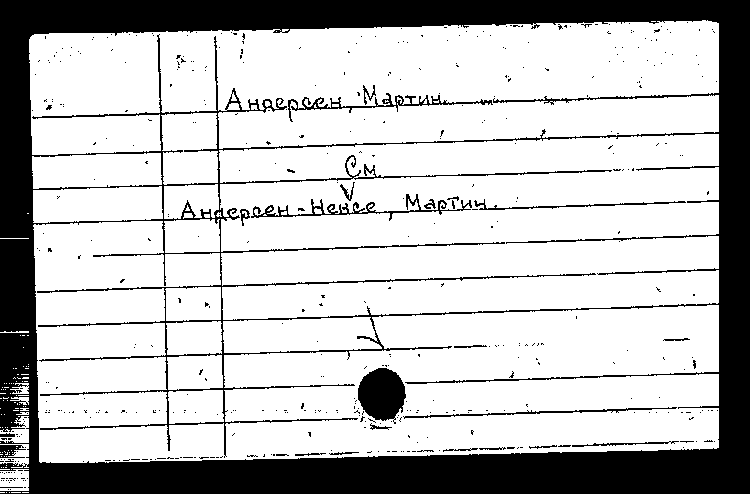 Андерсен, Мартин.
См.
Андерсен-Нексе, Мартин.